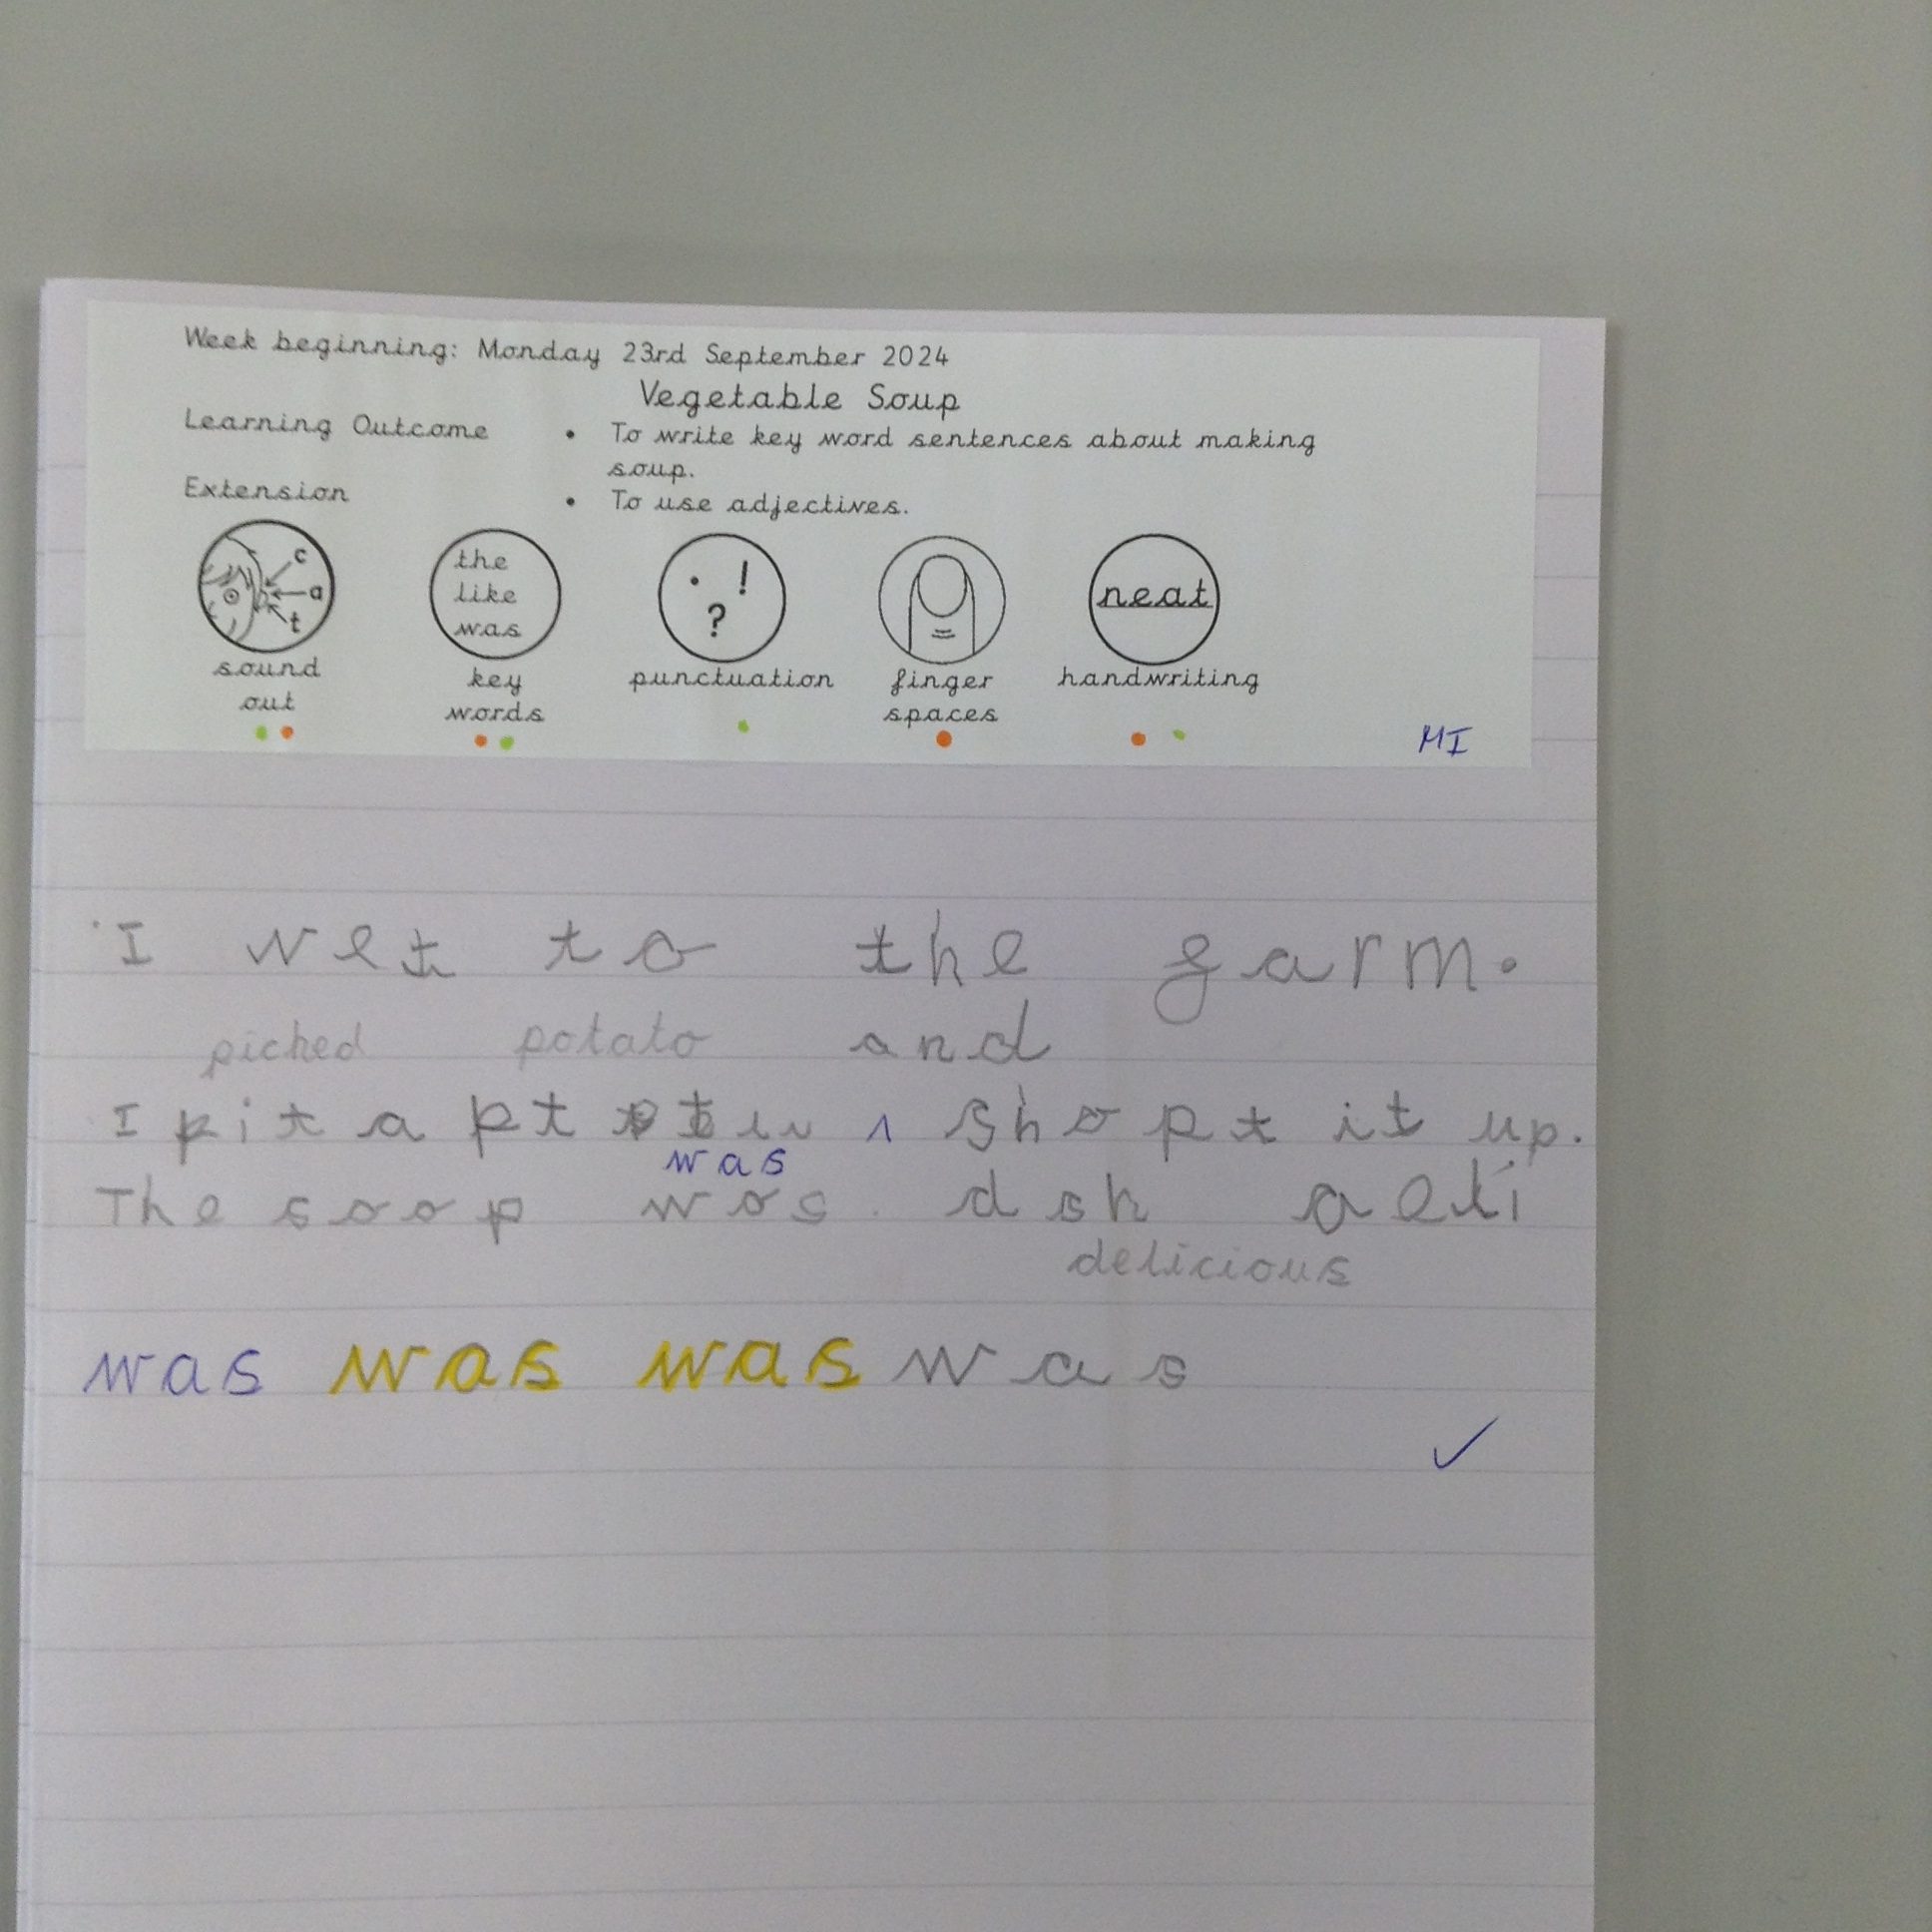 Week beginning: Monday 23rd September 2024
Vegetable Soup
Learning Outcome • To write key word sentences about making
soup.
Extension • To use adjectives.
c
a
t
the
like
was
. !
?
neat
sound
out
key
words
punctuation
finger
spaces
handwriting
MI
I wet to the farm.
piched potato and
I pit a pt ^ shopt it up.
was
The soop wos. dsh aeti
delicious
was was was was